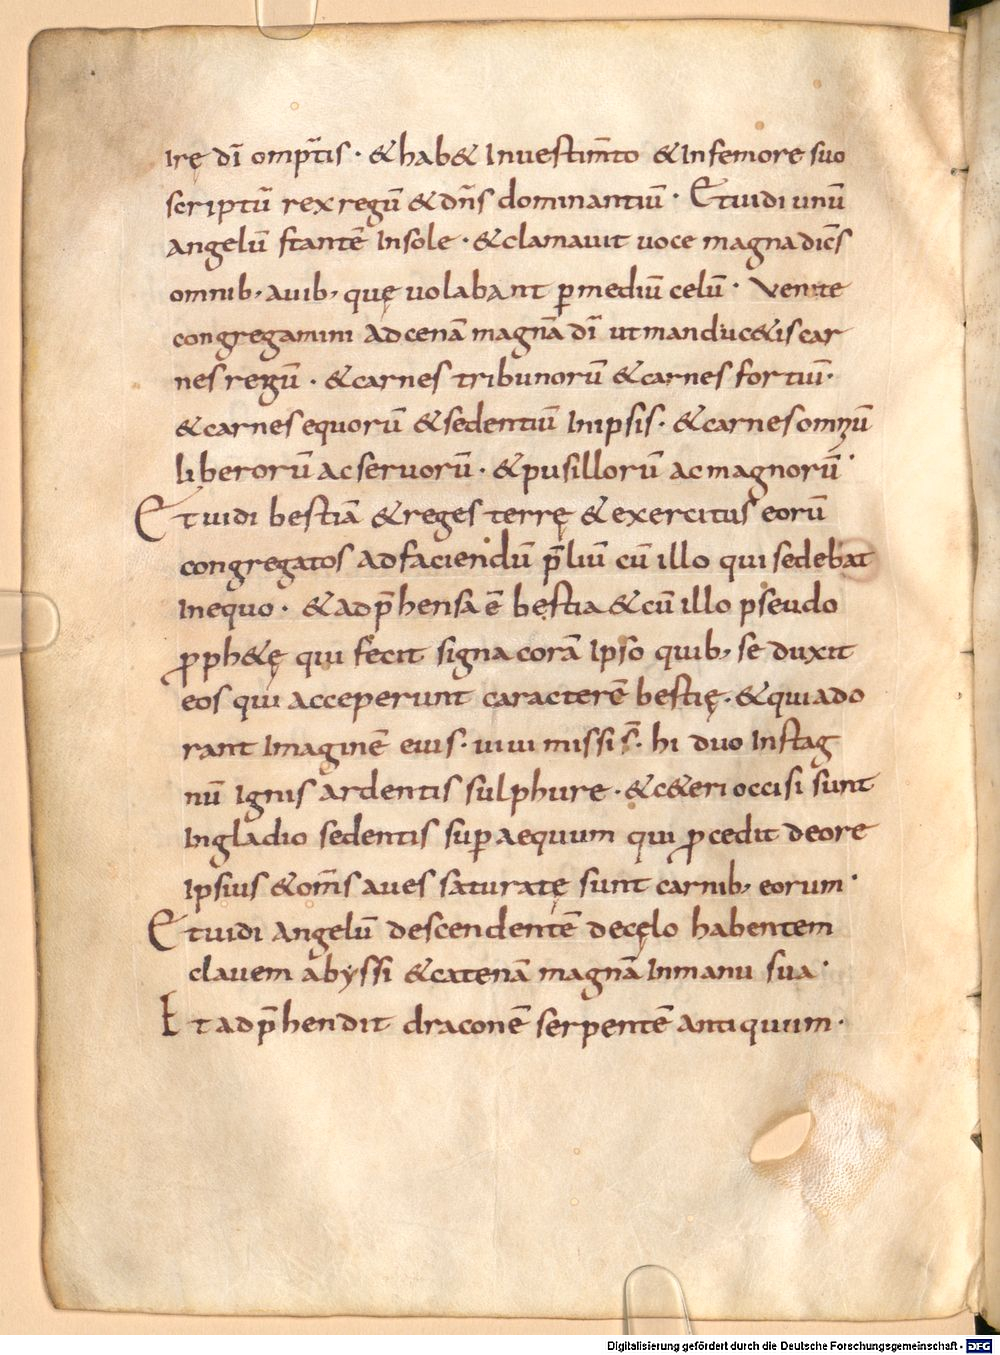 irę dī omp̄tis · & hab& Inuestim̄to & Infemore suo
scriptū rex regū & dn̄s dominantiū · Et uidi unū
angelū stantē Insole · & clamauit uoce magna dic̄s
omnib; auib; quę uolabant ꝑ mediū celū · Venite
congregamini ad cenā magnā dī ut manduc&is car
nes regū · & carnes tribunorū & carnes fortiū ·
& carnes equorū & sedentiū Inipsis · & carnes omniū
liberorū ac seruorū · & pusillorū ac magnorū ·
Et uidi bestiā & reges terrę & exercitus eorū
congregatos ad faciendū p̄liū cū illo qui sedebat
Inequo · & adp̄hensa ē bestia & cū illo pseudo
ꝓph&ę qui fecit signa corā Ipso quib; seduxit
eos qui acceperunt caracterē bestię · & qui ado
rant Imaginē eius · uiui missi s̄ · hi duo Instag
nū Ignis ardentis sulphure · & c&eri occisi sunt
Ingladio sedentis suꝑ aequum qui ꝓcedit deore
Ipsius & om̄s aues saturatę sunt carnib; eorum ·
Et uidi angelū descendentē decęlo habentem
clauem abyssi & catenā magnā Inmanu sua ·
Et adp̄hendit draconē serpentē antiquum ·
Digitalisierung gefördert durch die Deutsche Forschungsgemeinschaft - DFG